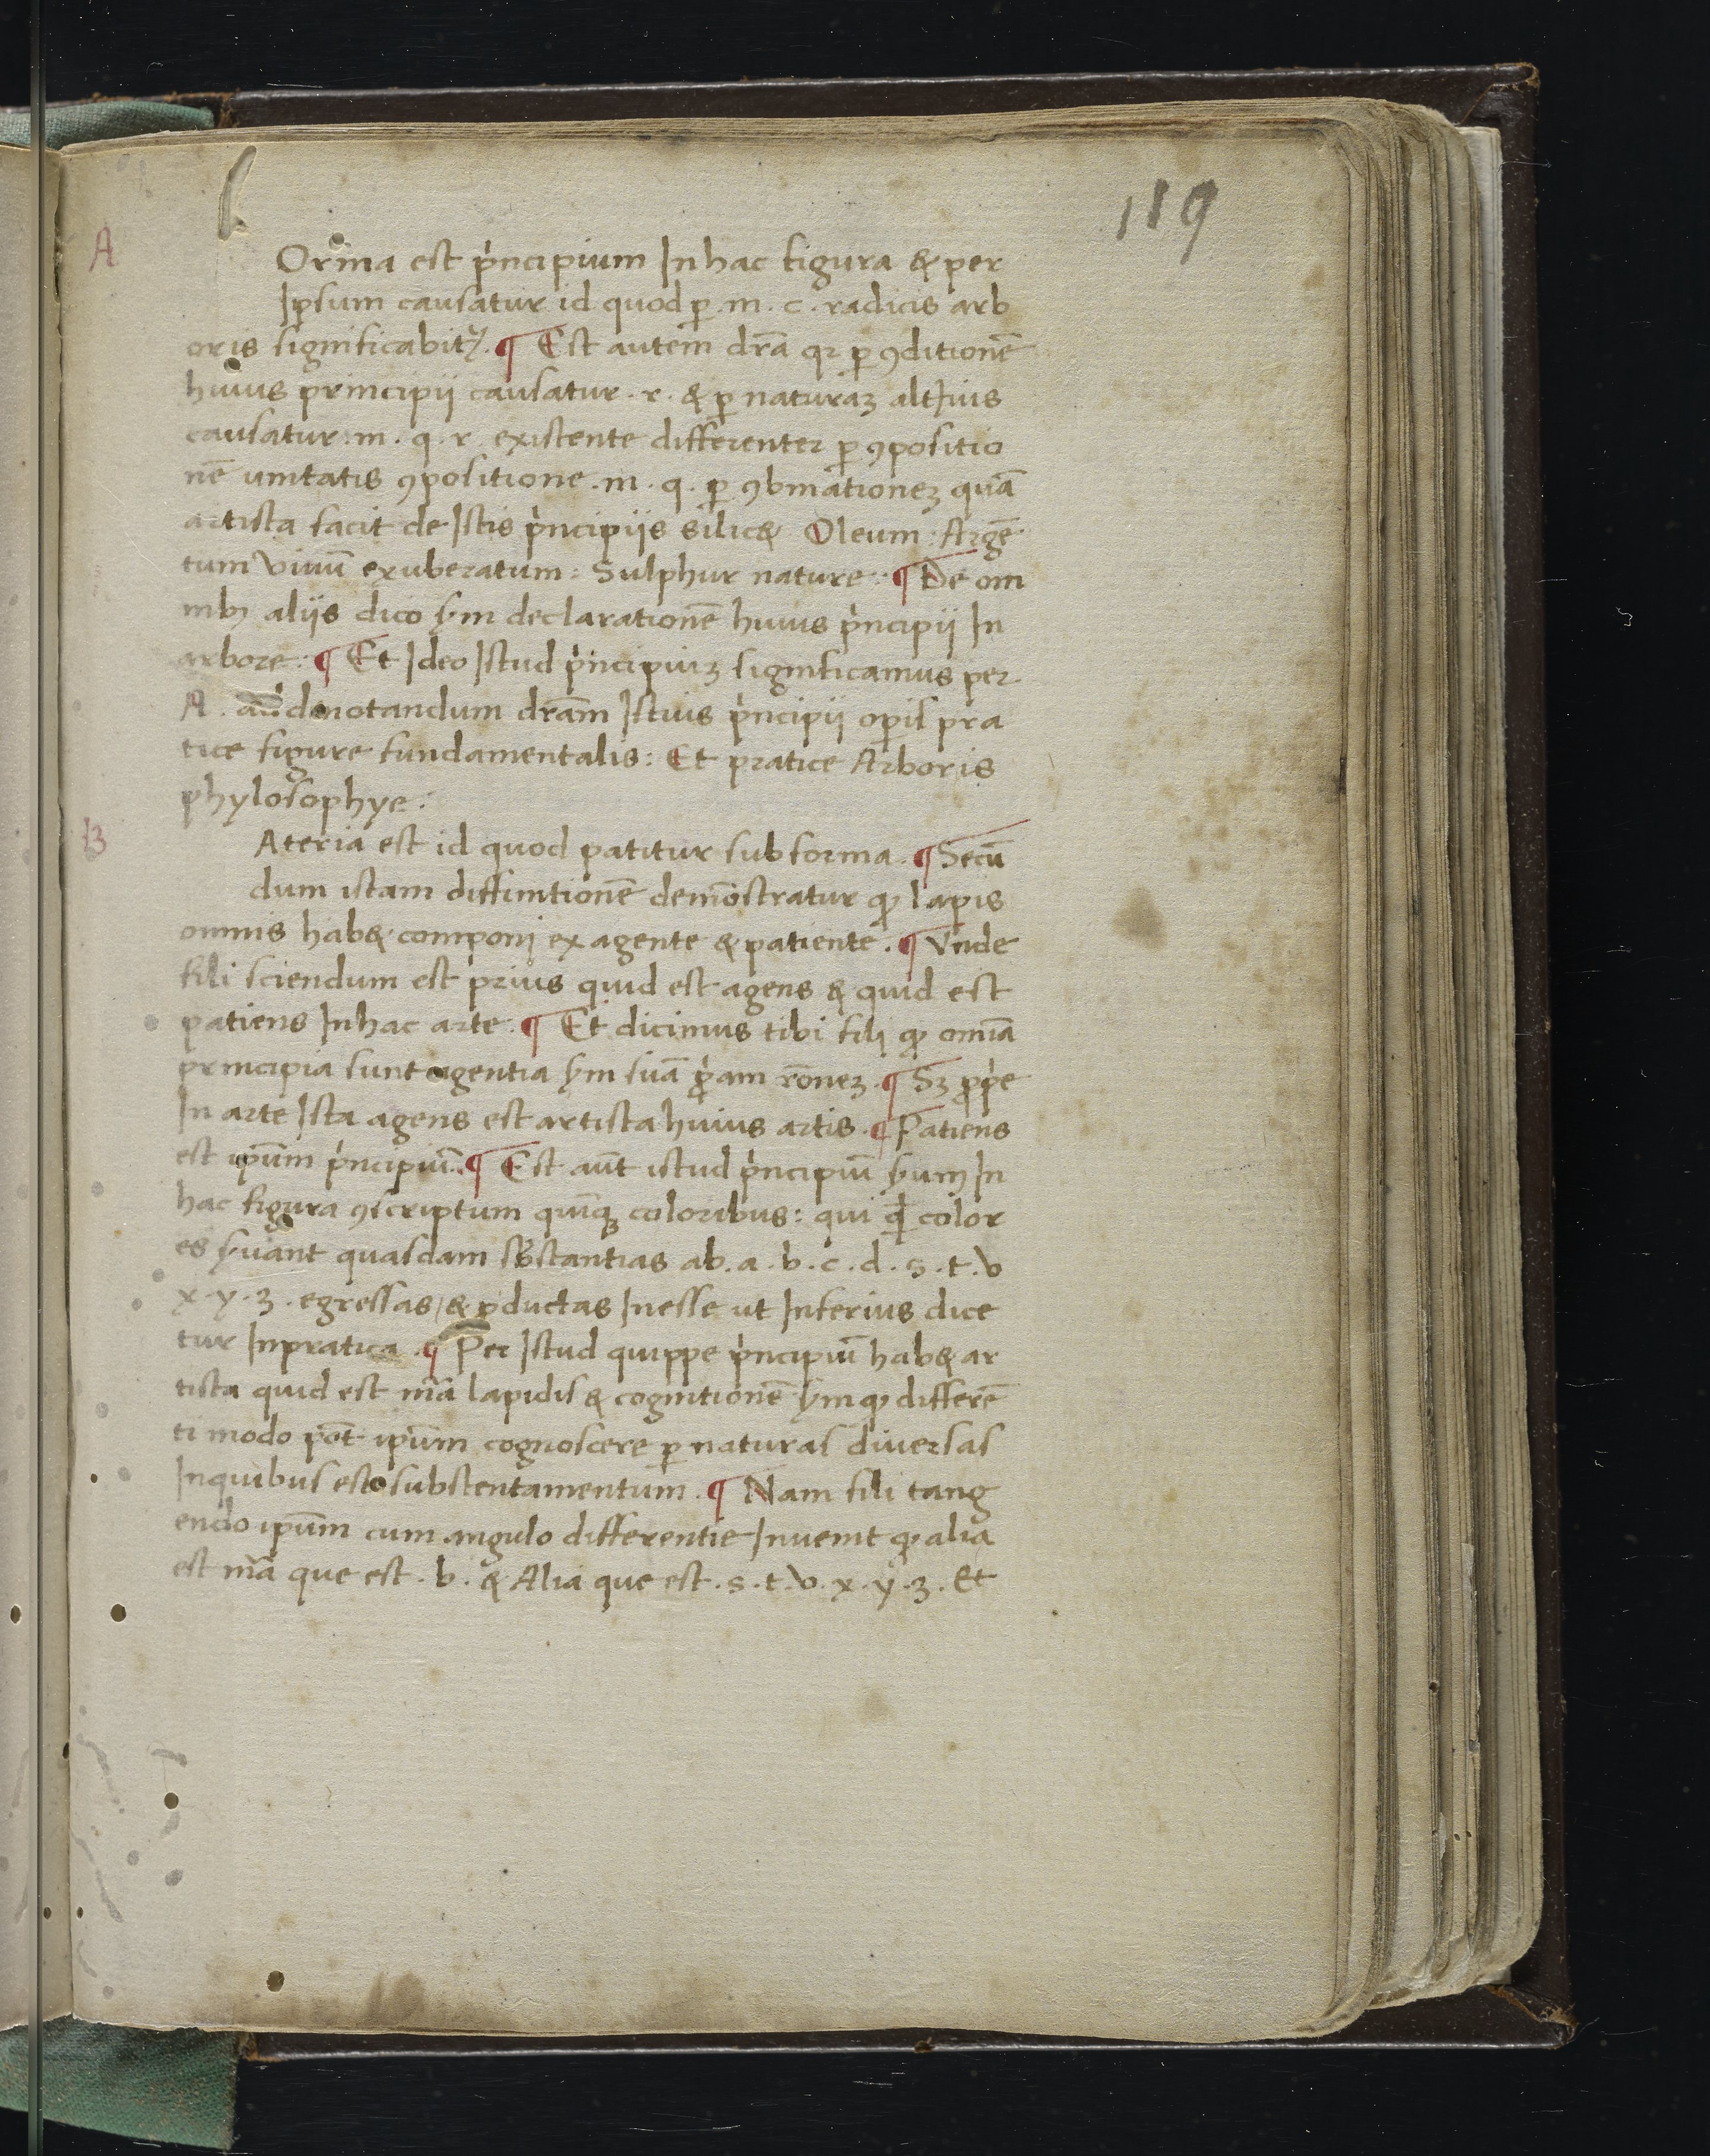 119
A
Orma est pͥncipium In hac figura & per
Ipsum causatur id quod ꝑ .m. c. radicis arb
oris significabitꝛ. ¶ Est autem dr̄a qꝛ ꝑ ꝯditionē
huius principii causatur .r. & ꝑ naturaꝫ alt̄ius
causatur .m. q. r existente differenter ꝑ ꝯpositio
nē unitatis ꝯpositione .m. q. ꝑ ꝯbinationeꝫ quā
artista facit de Istis pͥncipiis silic& Oleum: Argē
tum vivū exuberatum: Sulphur nature: ¶ De om
nibꝫ aliis dico ẜm declarationē huius pͥncipii In
arbore: ¶ Et Ideo Istud pͥncipiuꝫ significamus per
A. denotandum dr̄am Istius pͥncipii oꝑis pra
tice figure fundamentalis: Et pratice Arboris
phylosophye:
B
Ateria est id quod patitur sub forma. ¶ Secū
dum istam diffinitionē demōstratur ꝙ lapis
omnis hab& componi ex agente & patiente. ¶ Vnde
fili sciendum est prius quid est agens & quid est
patiens In hac arte. ¶ Et dicimus tibi fili ꝙ omīa
principia sunt agentia ẜm suā ꝓpͥam rōneꝫ. ¶ Sꝫ ꝓpͥe
In arte Ista agens est artista huius artis. ¶ Patiens
est ip̄um pͥncipiū. ¶ Est aūt istud pͥncipiū In
hac figura ꝯscriptum quinqꝫ coloribus: qui qͥdē color
es ẜuant quasdam sb̄stantias ab .a. b. c. d. s. t. v
x. y. z. egressas / & ꝓductas Inesse ut Inferius dice
tur In pratica. ¶ Per Istud quippe pͥncipiū hab& ar
tista quid est mā lapidis & cognitionē ẜm ꝙ differē
ti modo pōt ip̄um cognoscere ꝑ naturas diversas
In quibus est substentamentum. ¶ Nam fili tang
endo ip̄um cum angulo differentie Invenit ꝙ alia
est mā que est .b. & Alia que est .s. t. v. x. y. z. Et